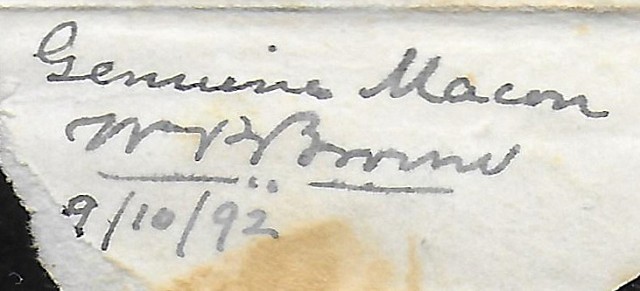 Genuine Macon
Wm P Brown
9/10/92